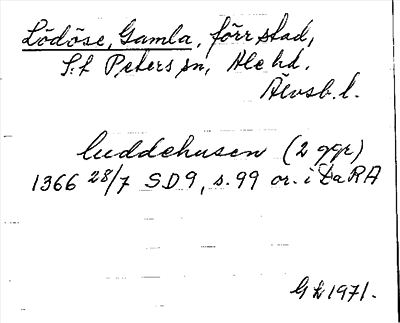 Lödöse, Gamla, förr stad,
S:t Peters sn, Ale hd.
Älvsb. l.
luddehusen (2 ggr)
1366 28/7 SD9, s. 99 or. i DaRA
GL 1971.